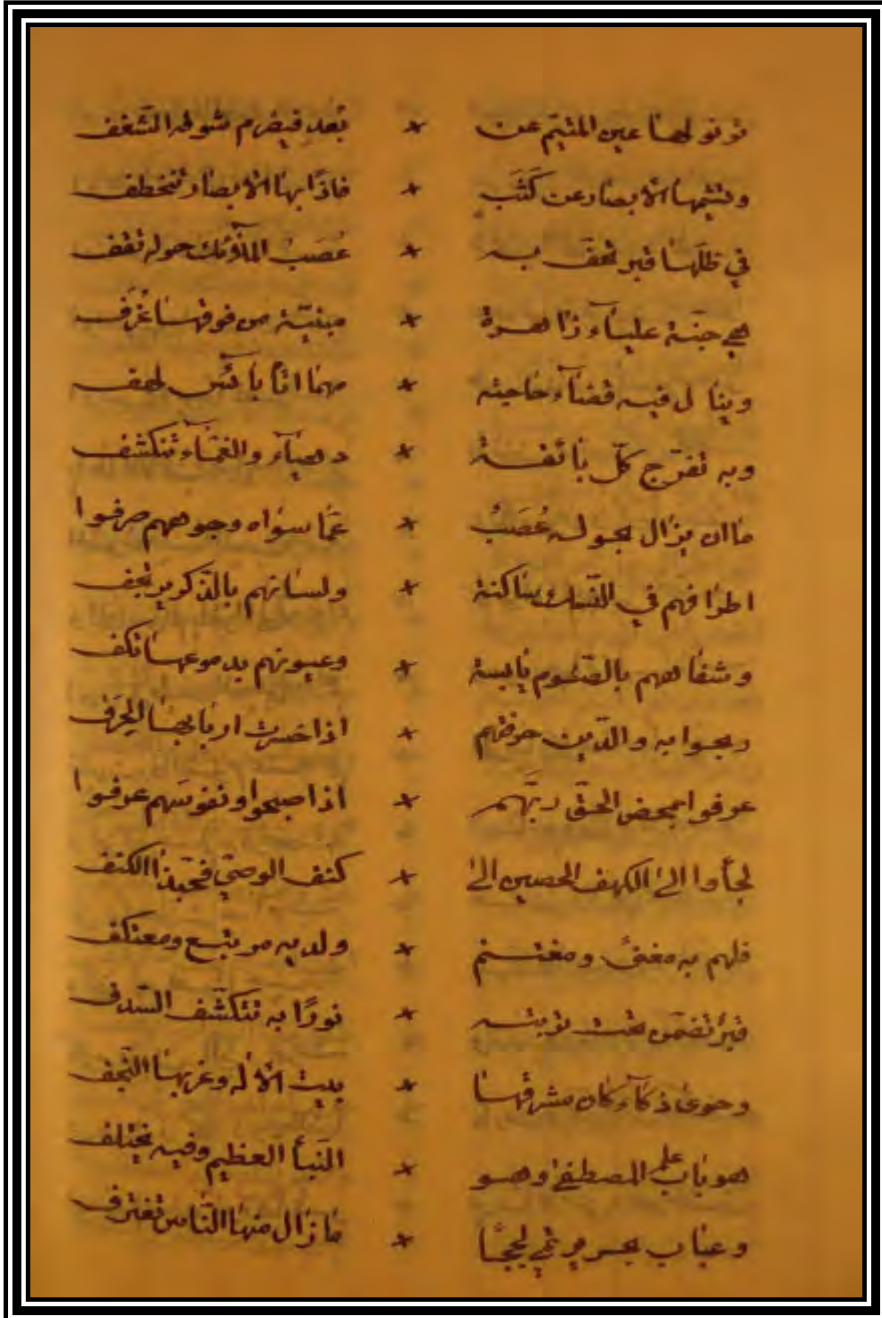 ترنو لها عين المتيم عن × بعد فيضرم شوقه الشغف
وتشيمها الأبصار عن كَثَب × فاذا بها الأبصار تنخطف
في ظلّها قبر تحفّ به × عُصَبُ الملآئك حوله تقف
هي جنّة عليآء زاهرة × مبنيّة من فوقها غُرَف
وينال فيه قضآء حاجته × مهما اتا بآئس لهف
وبه تفرّج كلّ نائفة × دهيآء والغمّآء تنكشف
ما ان يزال بحوله عُصَبُ × عمّا سواه وجوههم صرفوا
اطرافهم في النسك ساكنة × ولسانهم بالذكر يرتجف
وشفاههم بالصّوم يابسة × وعيونهم بدموعها تكف
ربحوا به والدّين حرفتهم × اذا خسرت اربابها الحِرَف
عرفوا بمحض الحقّ ربّهم × اذ اصبحوا ونفوسَهم عرفوا
لجأوا الى الكهف الحصين الى × كنف الوصيّ فحبّذا الكنف
فلهم به مغنىً ومغتنم × ولديه مرتبع ومعتكف
قبرٌ تضمّن تحت تربته × نورًا به تتكشّف السّدف
وحوى ذكآء كان مشرقها × بيت الأله وغربها النّجف
هو باب علم المصطفى وهو × النّبأ العظيم وفيه يختلف
وعباب بحر مرتمي لججًا × ما زال منها النّاس تغترف